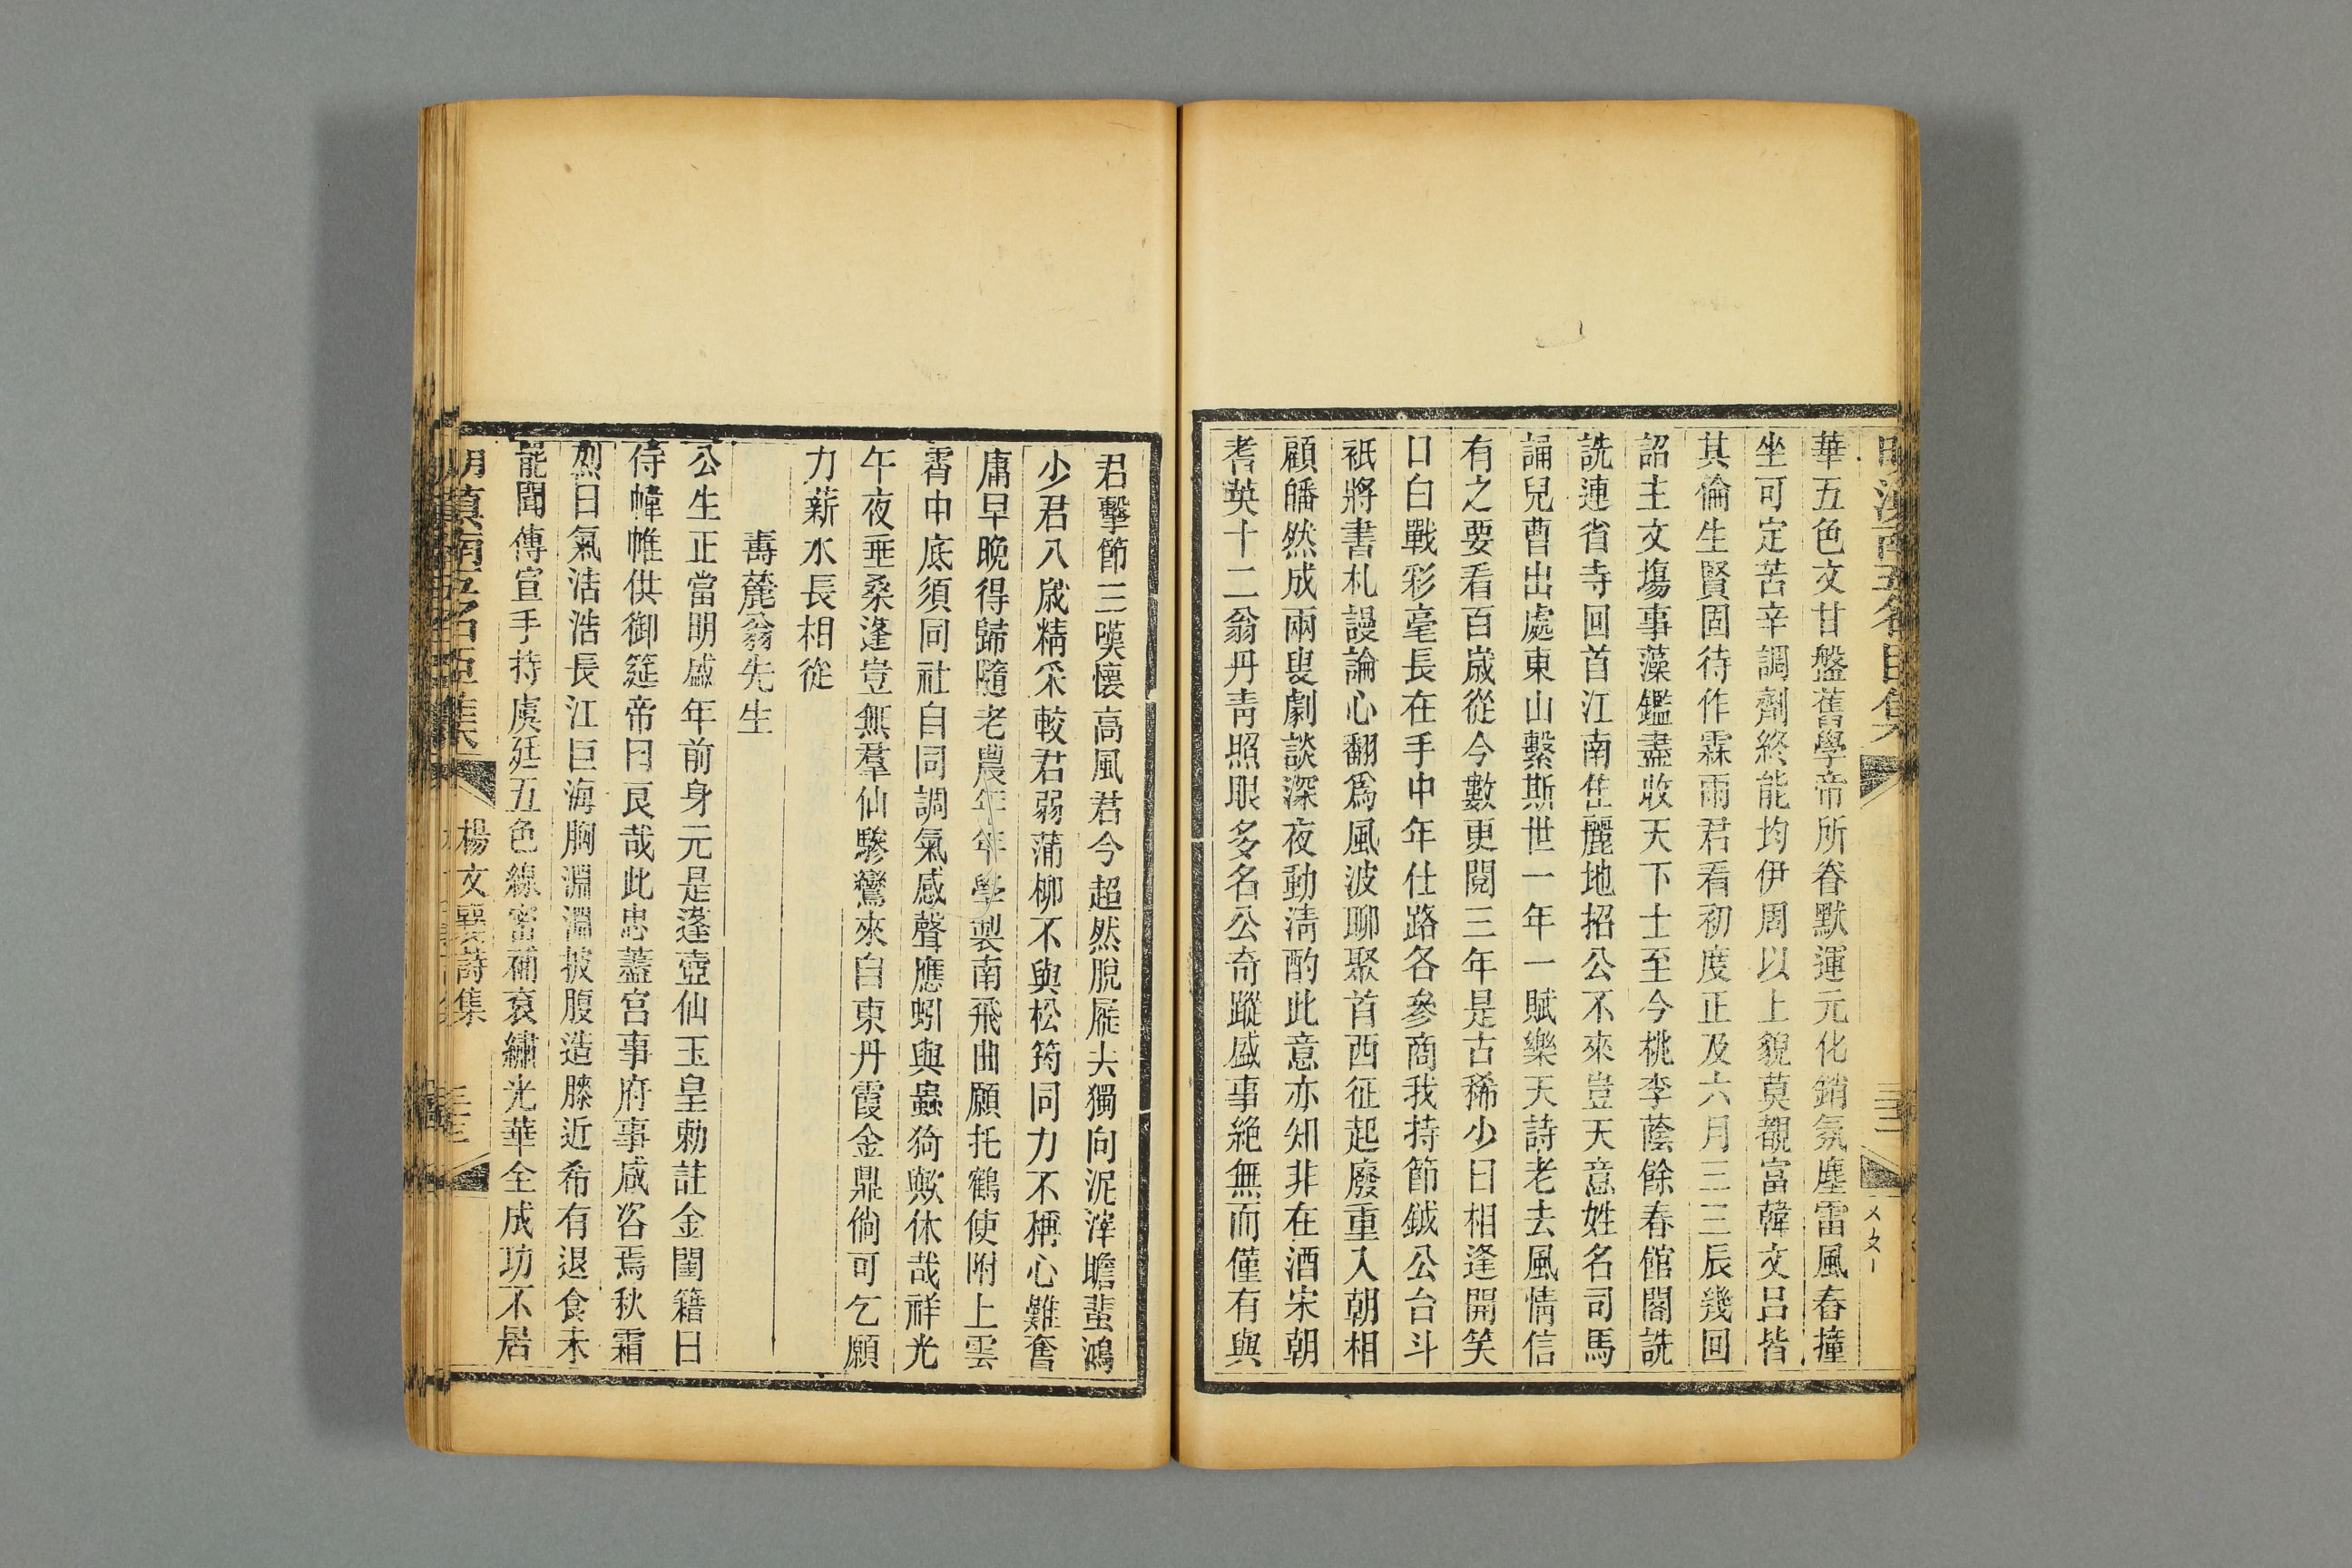 華五色文甘盤舊學帝所眷默運元化銷氛塵雷風舂撞
坐可定苦辛調劑終能均伊周以上貌莫覩富韓文呂皆
其倫生賢固待作霖雨君看初度正及六月三三辰幾回
詔主文塲事藻鑑盡收天下士至今桃李蔭餘春館閣詵
詵連省寺回首江南隹麗地招公不來豈天意姓名司馬
誦兒曹出處東山繫斯世一年一賦樂天詩老去風情信
有之要看百歲從今數更閱三年是古稀少日相逢開笑
口白戰彩毫長在手中年仕路各參商我持節鉞公台斗
衹將書札謾論心翻爲風波聊聚首西征起廢重入朝相
顧皤然成兩叟劇談深夜動淸酌此意亦知非在酒宋朝
耆英十二翁丹靑照眼多名公奇蹤盛事絶無而僅有與
君擊節三嘆懷高風君今超然脫屣去獨向泥滓瞻蜚鴻
少君八歲精采較君弱蒲柳不與松筠同力不稱心難奮
庸早晚得歸隨老農年年學製南飛曲願托鶴使附上雲
霄中底須同社自同調氣感聲應蚓與蟲猗歟休哉祥光
午夜垂桑逢豈無羣仙驂鸞來自東丹霞金鼎倘可乞願
力薪水長相從
壽麓翁先生
公生正當明盛年前身元是蓬壺仙玉皇勅註金閨籍日
侍幃帷供御筵帝曰良哉此忠藎宮事府事咸咨焉秋霜
烈日氣浩浩長江巨海胸淵淵披腹造膝近希有退食未
能聞傳宣手持虞廷五色線密補袞繡光華全成功不居
明滇南五名臣集 楊文襄詩集 三三